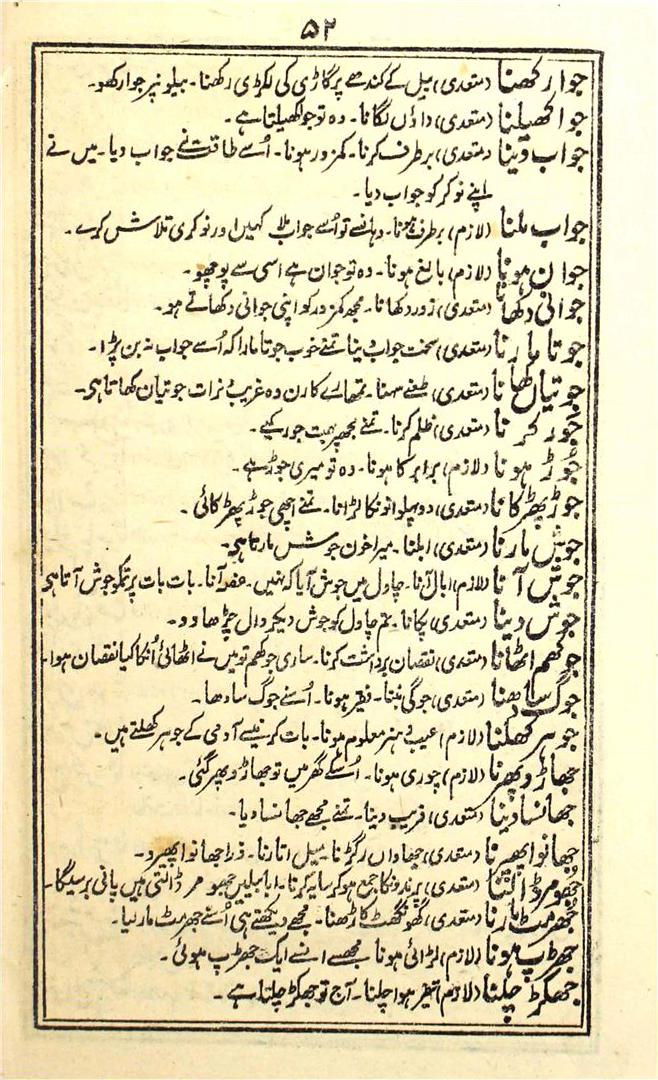 ۵۲
جوا رکھنا (متعدی) بیل کے کندھے پر گاڑی کی لکڑی رکھنا۔ بیلونپر جوا رکھو۔
جوا کھیلنا (متعدی) داؤں لگانا۔ وہ تو جوا کھیلتا ہے۔
جواب دینا (متعدی) برطرف کرنا۔ کمزور ہونا۔ اُسے طاقت نے جواب دیا۔ میں نے
اپنے نوکر کو جواب دیا۔
جواب ملنا (لازم) برطرف ہونا۔ وہانسے تو اُسے جواب ملا کہیں اور نوکری تلاش کرے۔
جوان ہونا (لازم) بالغ ہونا۔ وہ تو جوان ہے اسی سے پوچھو۔
جوانی دکھانا (متعدی) زور دکھانا۔ مجھ کمزور کو اپنی جوانی دکھاتے ہو۔
جوتا مارنا (متعدی) سخت جواب دینا تمنے خوب جوتا مارا کہ اُسے جواب نہ بن پڑا۔
جوتیاں کھانا (متعدی) طعنے سہنا۔ تمھارے کارن وہ غریب دنرات جوتیاں کھاتا ہے۔
جور کرنا (متعدی) ظلم کرنا۔ تمنے مجھپر بہت جور کیے۔
جوڑ ہونا (لازم) برابر کا ہونا۔ وہ تو میری جوڑ ہے۔
جوڑ پھڑکانا (متعدی) دو پہلوانونکا لڑانا۔ تمنے اچھی جوڑ پھڑکائی۔
جوش مارنا (متعدی) ابلنا۔ میرا خون جوش مارتا ہے۔
جوش آنا (لازم) ابال آنا۔ چاول میں جوش آیا کہ نہیں۔ غصہ آنا۔ بات بات پر تمکو جوش آتا ہے
جوش دینا (متعدی) پکانا۔ تم چاول کو جوش دیکر دال چڑھا دو۔
جوکھم اٹھانا (متعدی) نقصان برداشت کرنا۔ ساری جوکھم تو میں نے اٹھائی اُنکا کیا نقصان ہوا۔
جوگ سادھنا (متعدی) جوگی بننا۔ فقیر ہونا۔ اُسنے جوگ سادھا۔
جوہر کھلنا (لازم) عیب و ہنر معلوم ہونا۔ بات کرنیسے آدمی کے جوہر کھلتے ہیں۔
جھاڑو پھرنا (لازم) چوری ہونا۔ اُسکے گھر میں تو جھاڑو پھر گئی۔
جھانسا دینا (متعدی) فریب دینا۔ تمنے مجھے جھانسا دیا۔
جھانوا پھیرنا (متعدی) جھاواں رگڑنا۔ میل اتارنا۔ ذرا جھانوا پھیرو۔
جھومر ڈالنا (متعدی) پرندونکا جمع ہو کر سایہ کرنا۔ ابابیلیں جھومر ڈالتی ہیں پانی برسیگا۔
جھرمٹ مارنا (متعدی) گھونگھٹ کاڑھنا۔ مجھے دیکھتے ہی اُسنے جھرمٹ مار لیا۔
جھڑپ ہونا (لازم) لڑائی ہونا مجھسے انسے ایک جھڑپ ہوئی۔
جھکڑ چلنا (لازم) تیز ہوا چلنا۔ آج تو جھکڑ چلتا ہے۔